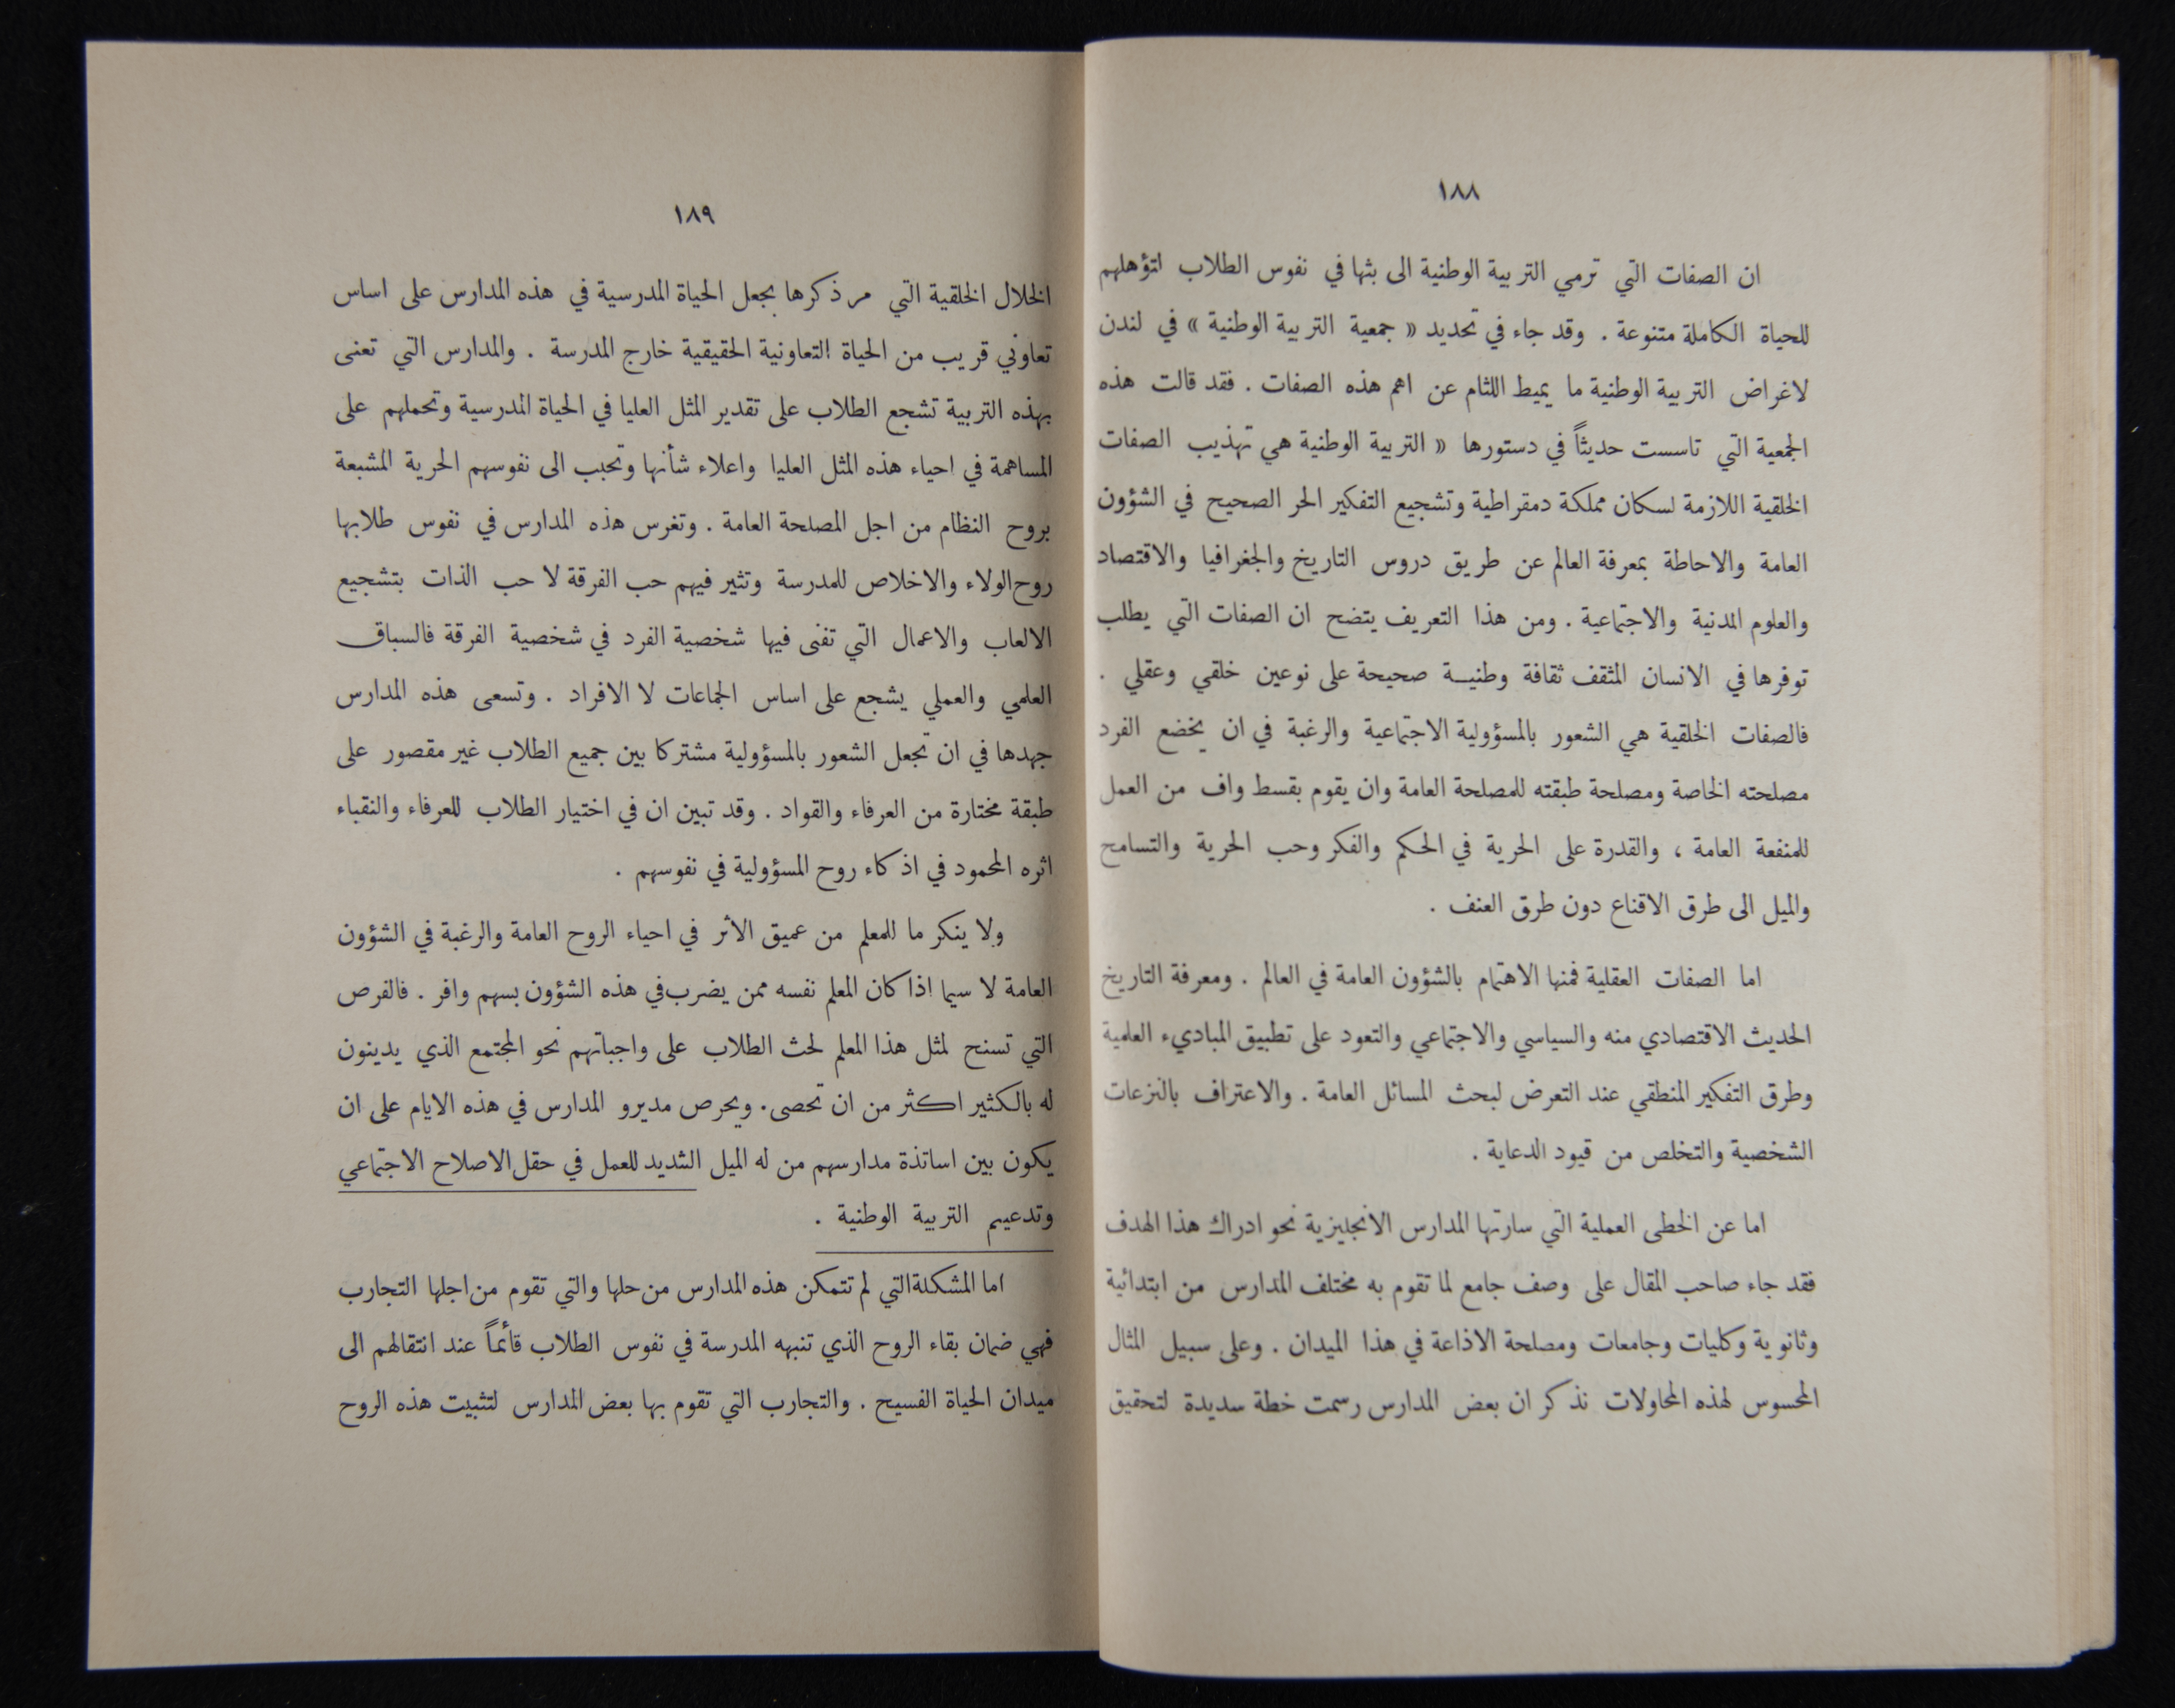 ١٨٨
ان الصفات التي ترمي التربية الوطنية الى بثها في نفوس الطلاب لتؤهلهم
للحياة الكاملة متنوعة . وقد جاء في تحديد « جمعية التربية الوطنية » في لندن
لاغراض التربية الوطنية ما يميط اللثام عن اهم هذه الصفات . فقد قالت هذه
الجمعية التي تاسست حديثاً في دستورها « التربية الوطنية هي تهذيب الصفات
الخلقية اللازمة لسكان مملكة دمقراطية وتشجيع التفكير الحر الصحيح في الشؤون
العامة والاحاطة بمعرفة العالم عن طريق دروس التاريخ والجغرافيا والاقتصاد
والعلوم المدنية والاجتماعية . ومن هذا التعريف يتضح ان الصفات التي يطلب
توفرها في الانسان المثقف ثقافة وطنيـة صحيحة على نوعين خلقي وعقلي .
فالصفات الخلقية هي الشعور بالمسؤولية الاجتماعية والرغبة في ان يخضع الفرد
مصلحته الخاصة ومصلحة طبقته للمصلحة العامة وان يقوم بقسط واف من العمل
للمنفعة العامة ، والقدرة على الحرية في الحكم والفكر وحب الحرية والتسامح
والميل الى طرق الاقناع دون طرق العنف .
اما الصفات العقلية فمنها الاهتمام بالشؤون العامة في العالم . ومعرفة التاريخ
الحديث الاقتصادي منه والسياسي والاجتماعي والتعود على تطبيق المباديء العلمية
وطرق التفكير المنطقي عند التعرض لبحث المسائل العامة . والاعتراف بالنزعات
الشخصية والتخلص من قيود الدعاية .
اما عن الخطى العملية التي سارتها المدارس الانجليزية نحو ادراك هذا الهدف
فقد جاء صاحب المقال على وصف جامع لما تقوم به مختلف المدارس من ابتدائية
وثانوية وكليات وجامعات ومصلحة الاذاعة في هذا الميدان . وعلى سبيل المثال
المحسوس لهذه المحاولات نذكر ان بعض المدارس رسمت خطة سديدة لتحقيق
١٨٩
الخلال الخلقية التي مر ذكرها بجعل الحياة المدرسية في هذه المدارس على اساس
تعاوني قريب من الحياة التعاونية الحقيقية خارج المدرسة . والمدارس التي تعنى
بهذه التربية تشجع الطلاب على تقدير المثل العليا في الحياة المدرسية وتحملهم على
المساهمة في احياء هذه المثل العليا واعلاء شأنها وتحبب الى نفوسهم الحرية المشبعة
بروح النظام من اجل المصلحة العامة . وتغرس هذه المدارس في نفوس طلابها
روح الولاء والاخلاص للمدرسة وتثير فيهم حب الفرقة لا حب الذات بتشجيع
الالعاب والاعمال التي تفنى فيها شخصية الفرد في شخصية الفرقة فالسباق
العلمي والعملي يشجع على اساس الجماعات لا الافراد . وتسعى هذه المدارس
جهدها في ان تجعل الشعور بالمسؤولية مشتركا بين جميع الطلاب غير مقصور على
طبقة مختارة من العرفاء والقواد . وقد تبين ان في اختيار الطلاب للعرفاء والنقباء
اثره المحمود في اذكاء روح المسؤولية في نفوسهم .
ولا ينكر ما للمعلم من عميق الاثر في احياء الروح العامة والرغبة في الشؤون
العامة لا سيما اذا كان المعلم نفسه ممن يضرب في هذه الشؤون بسهم وافر . فالفرص
التي تسنح لمثل هذا المعلم لحث الطلاب على واجباتهم نحو المجتمع الذي يدينون
له بالكثير اكثر من ان تحصى . ويحرص مديرو المدارس في هذه الايام على ان
يكون بين اساتذة مدارسهم من له الميل الشديد للعمل في حقل الاصلاح الاجتماعي
وتدعيم التربية الوطنية .
اما المشكلة التي لم تتمكن هذه المدارس من حلها والتي تقوم من اجلها التجارب
فهي ضمان بقاء الروح الذي تنبهه المدرسة في نفوس الطلاب قائماً عند انتقالهم الى
ميدان الحياة الفسيح . والتجارب التي تقوم بها بعض المدارس لتثبيت هذه الروح